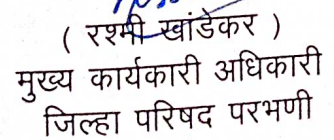 ( रश्मी खांडेकर )
मुख्य कार्यकारी अधिकारी
जिल्हा परिषद परभणी